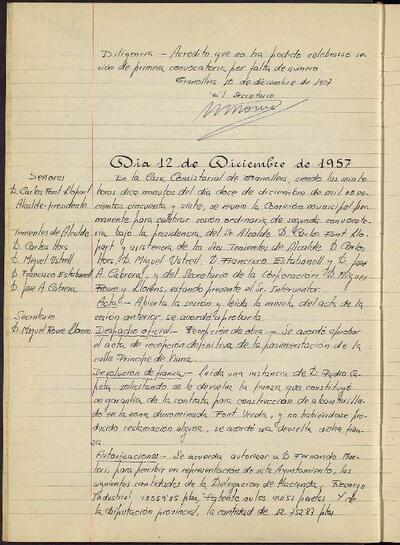 Diligencia – Acredito que no ha podido celebrarse se
sión de primera convocatoria por falta de número.
Granollers, 10 de diciembre de 1957
El Secretario
Día 12 de Diciembre de 1957
Señores
D. Carlos Font Llopart
Alcalde-presidente
Tenientes de Alcalde
D. Carlos Hors
D. Miguel Ustrell
D. Francisco Estabanell
D. José A. Cabrera
Secretario
D. Miguel Roure Llorens
En la Casa Consistorial de Granollers, siendo las veinte
horas diez minutos del día doce de diciembre de mil nove
cientos cincuenta y siete, se reunió la Comisión municipal per
manente para celebrar sesión ordinaria de segunda convocato
ria bajo la presidencia del Sr Alcalde D. Carlos Font Llo
part y asistencia de los Sres Tenientes de Alcalde D. Carlos
Hors, D. Miguel Ustrell, D. Francisco Estabanell y D. José
A. Cabrera, y del Secretario de la Corporación D. Miguel
Roure y Llorens, estando presente el Sr. Interventor.
Acta – Abierta la sesión y leída la minuta del acta de la
sesión anterior, se acordó aprobarla
Despacho oficial – Recepción de obra – Se acordó aprobar
el acta de recepción definitiva de la pavimentación de la
calle Príncipe de Viana.
Devolución de fianza – Leída una instancia de D. Pedro
solicitando se le devuelva la fianza que constituyó
en garantía de la contrata para construcción de alcantarilla
do en la zona denominada Font Verda, y no habiéndose pro
ducido reclamación alguna, se acordó sea devuelta dicha fian
za
Autorizaciones – Se acuerda autorizar a D. Fernando
para percibir en representación de este Ayuntamiento, las
siguientes cantidades de la Delegación de Hacienda, Recargo
Industrial ptas, Patente autos pesetas Y de
la Diputación provincial, la cantidad de 12.752'87 ptas